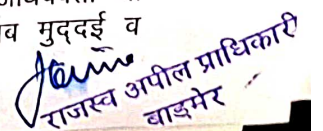 व मुद्दई व
राजस्व अपील प्राधिकारी
बाड़मेर